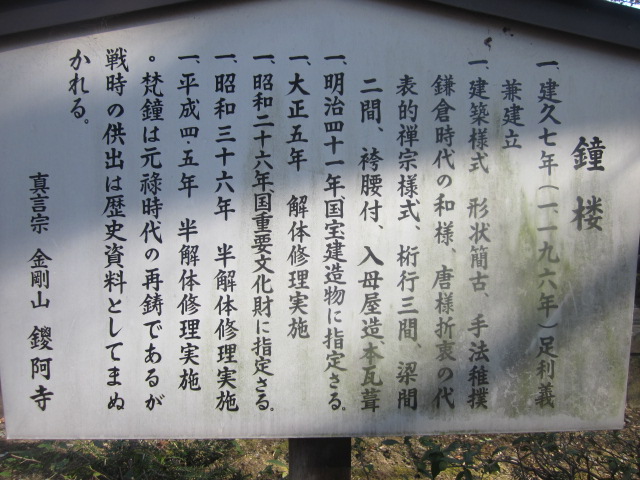 鐘楼
一、建久七年（一、一九六年）足利義
兼建立
一、建築様式　形状簡古、手法稚撲
鎌倉時代の和様、唐様折衷の代
表的禅宗様式、桁行三間、梁間
二間、袴腰付、入母屋造、本瓦葺
一、明治四十一年、国宝建造物に指定さる。
一、大正五年　解体修理実施
一、昭和二十六年、国重要文化財に指定さる。
一、昭和三十六年　半解体修理実施
一、平成四・五年　半解体修理実施
。梵鐘は元禄時代の再鋳であるが
戦時の供出は歴史資料としてまぬ
かれる。
真言宗　金剛山　鑁阿寺